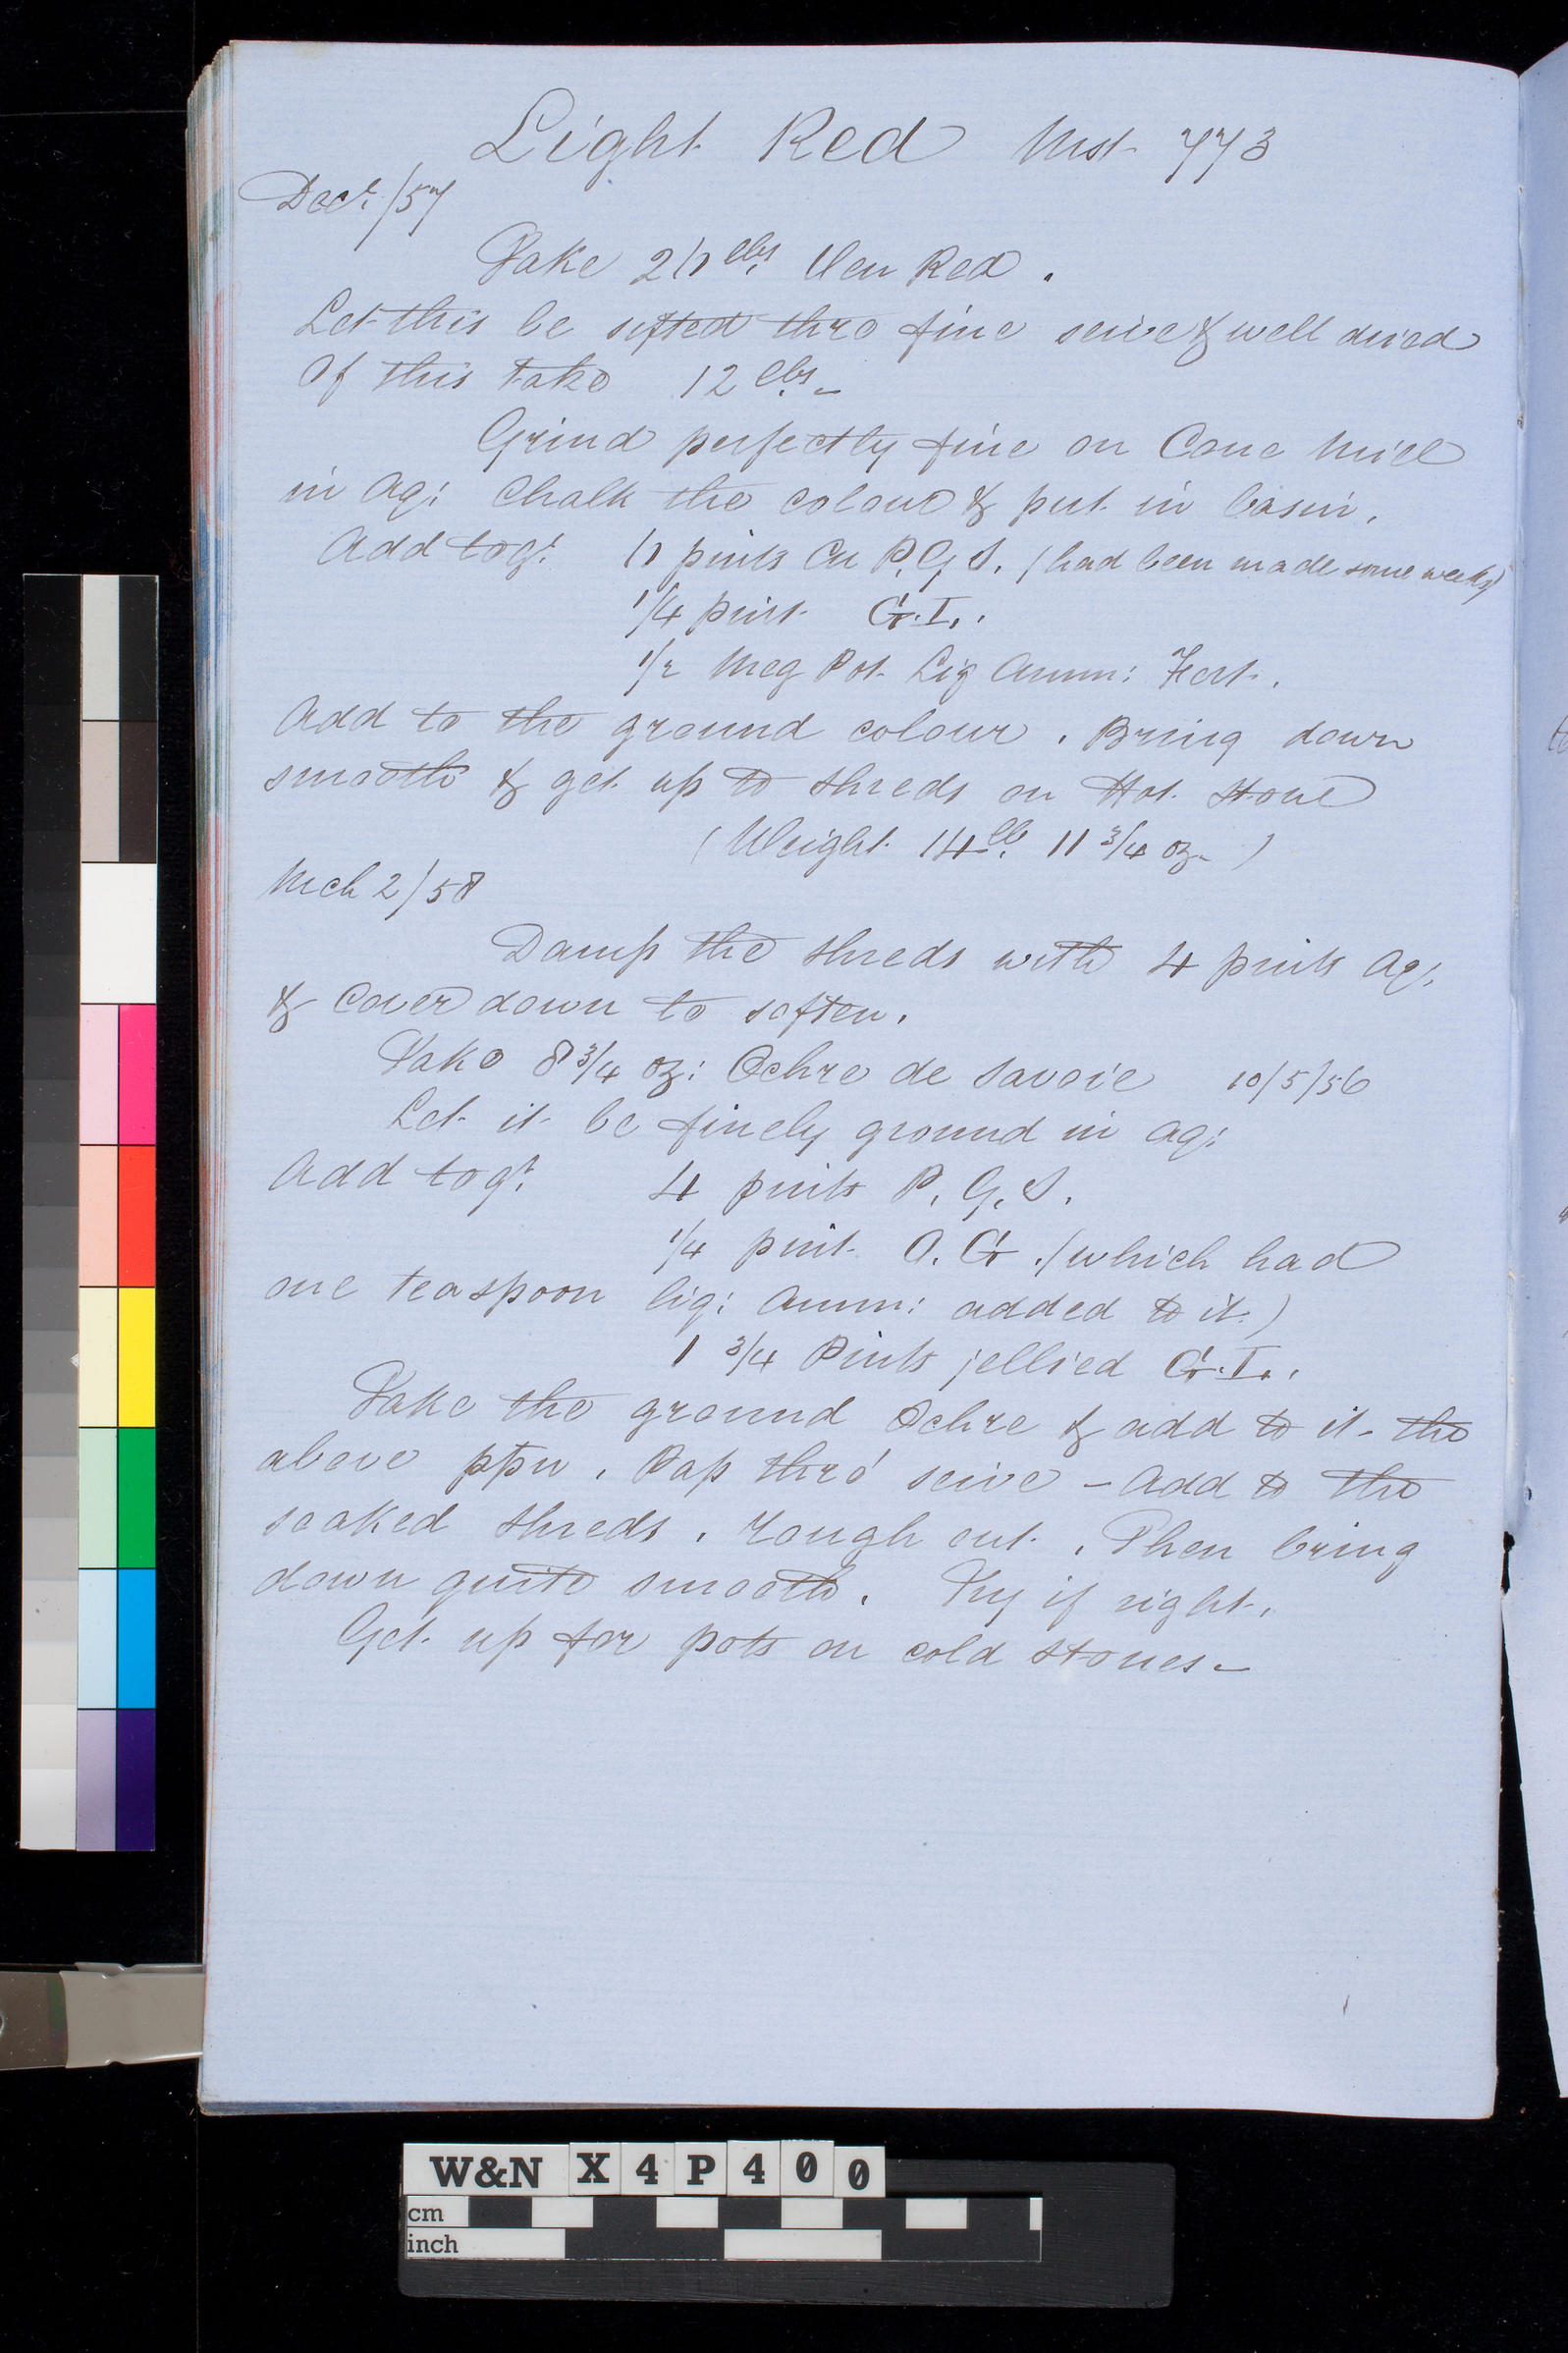 Light Red Mst 773
Decr/57
Take 20 lbs Ven Red.
Let this be sifted thro fine seive & well dried
Of this take 12 lbs -
Grind perfectly fine on Cone Mill
in Aq: Chalk the colour & put in basin.
Add togr. 10 pints Cu P.G.S. (had been made some weeks)
1/4 pint G.I..
1/2 Meg Pot Liq Amm: Fort.
Add to the ground colour. Bring down
smooth & get up to shreds on Hot Stone
(Weight 14 lb 11 3/4 oz -)
Mch 2/58
Damp the shreds with 4 pints Aq:
& cover down to soften.
Take 8 3/4 oz: Ochre de Savoie 10/5/56
Let it be finely ground in aq:
Add togr. 4 pints P.G.S.
1/4 pint O.G. (which had
one teaspoon liq: Amm: added to it)
1 3/4 Pints jellied G.I..
Take the ground Ochre & add to it - the
above ppn. Pap thro' seive - Add to the
soaked shreds. Rough out. Then bring
down quite smooth. Try if right.
Get up for pots on cold stones -
W&N X4P400
cm
inch